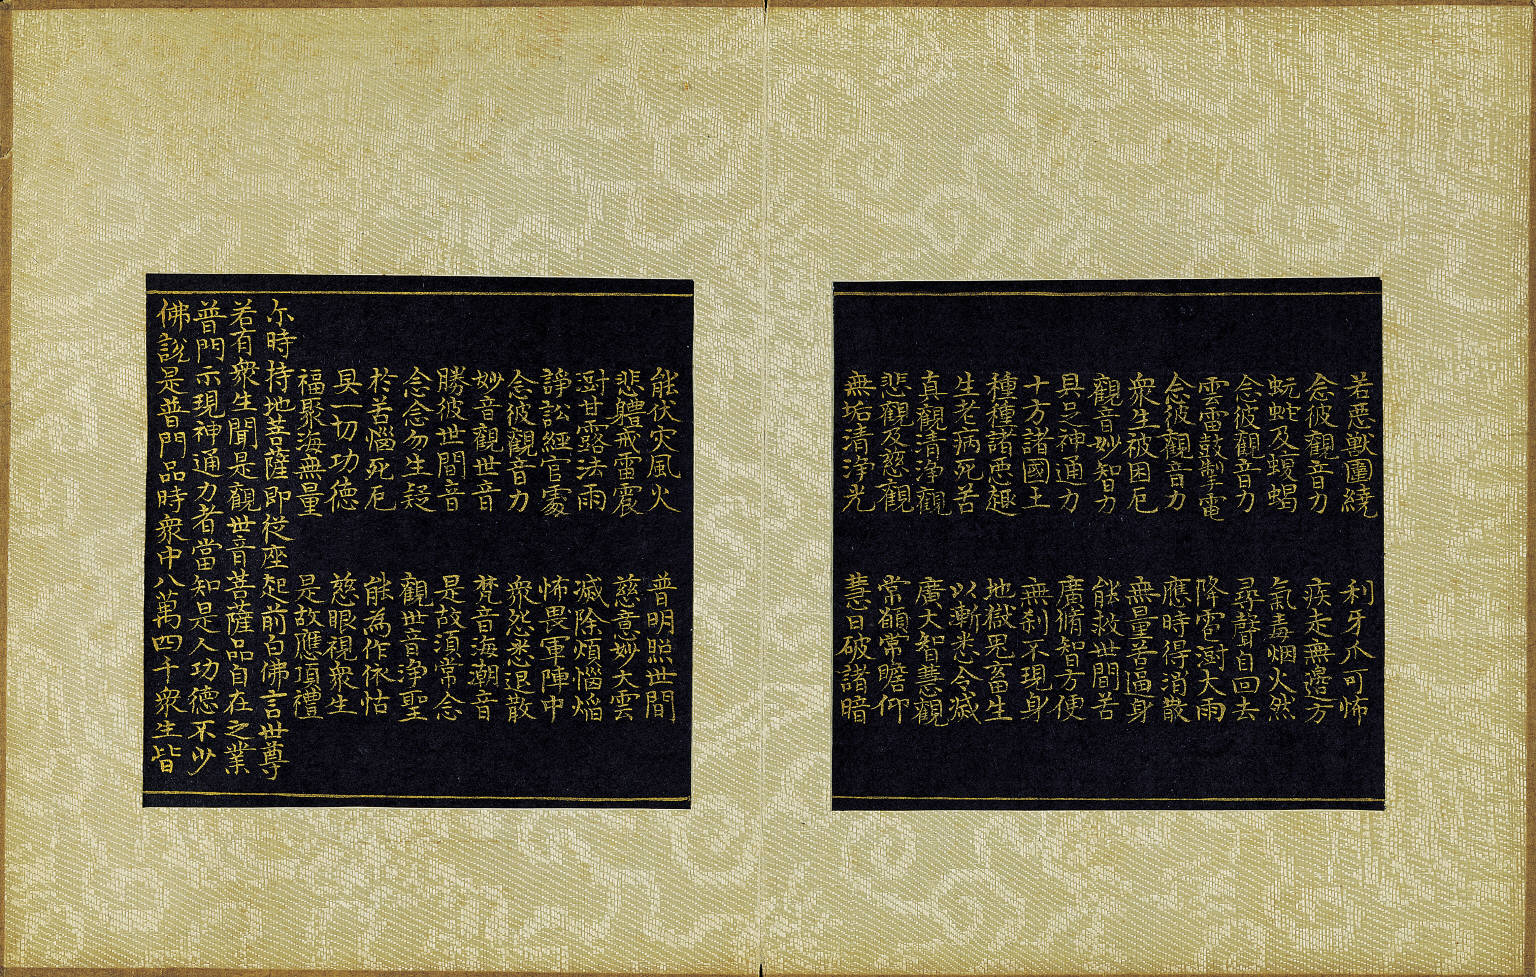 若惡獸圍繞　利牙爪可怖
念彼觀音力　疾走無邊方
蚖蛇及蝮蝎　氣毒烟火然
念彼觀音力　尋聲自回去
雲雷鼓掣電　降雹澍大雨
念彼觀音力　應時得消散
衆生被困厄　無量苦逼身
觀音妙智力　能救世間苦
具足神通力　廣脩智方便
十方諸國土　無剎不現身
種種諸惡趣　地獄鬼畜生
生老病死苦　以漸悉令滅
真觀清淨觀　廣大智慧觀
悲觀及慈觀　常願常瞻仰
無垢清淨光　慧日破諸暗
能伏灾風火　普明照世間
悲體戒雷震　慈意妙大雲
澍甘露法雨　滅除煩惱焰
諍訟經官處　怖畏軍陣中
念彼觀音力　衆怨悉退散
妙音觀世音　梵音海潮音
勝彼世間音　是故須常念
念念勿生疑　觀世音淨聖
於苦惱死厄　能為作依怙
具一切功德　慈眼視衆生
福聚海無量　是故應頂禮
尒時持地菩薩即從座起前白佛言世尊
若有衆生聞是觀世音菩薩品自在之業
普門示現神通力者當知是人功德不少
佛說是普門品時衆中八萬四千衆生皆